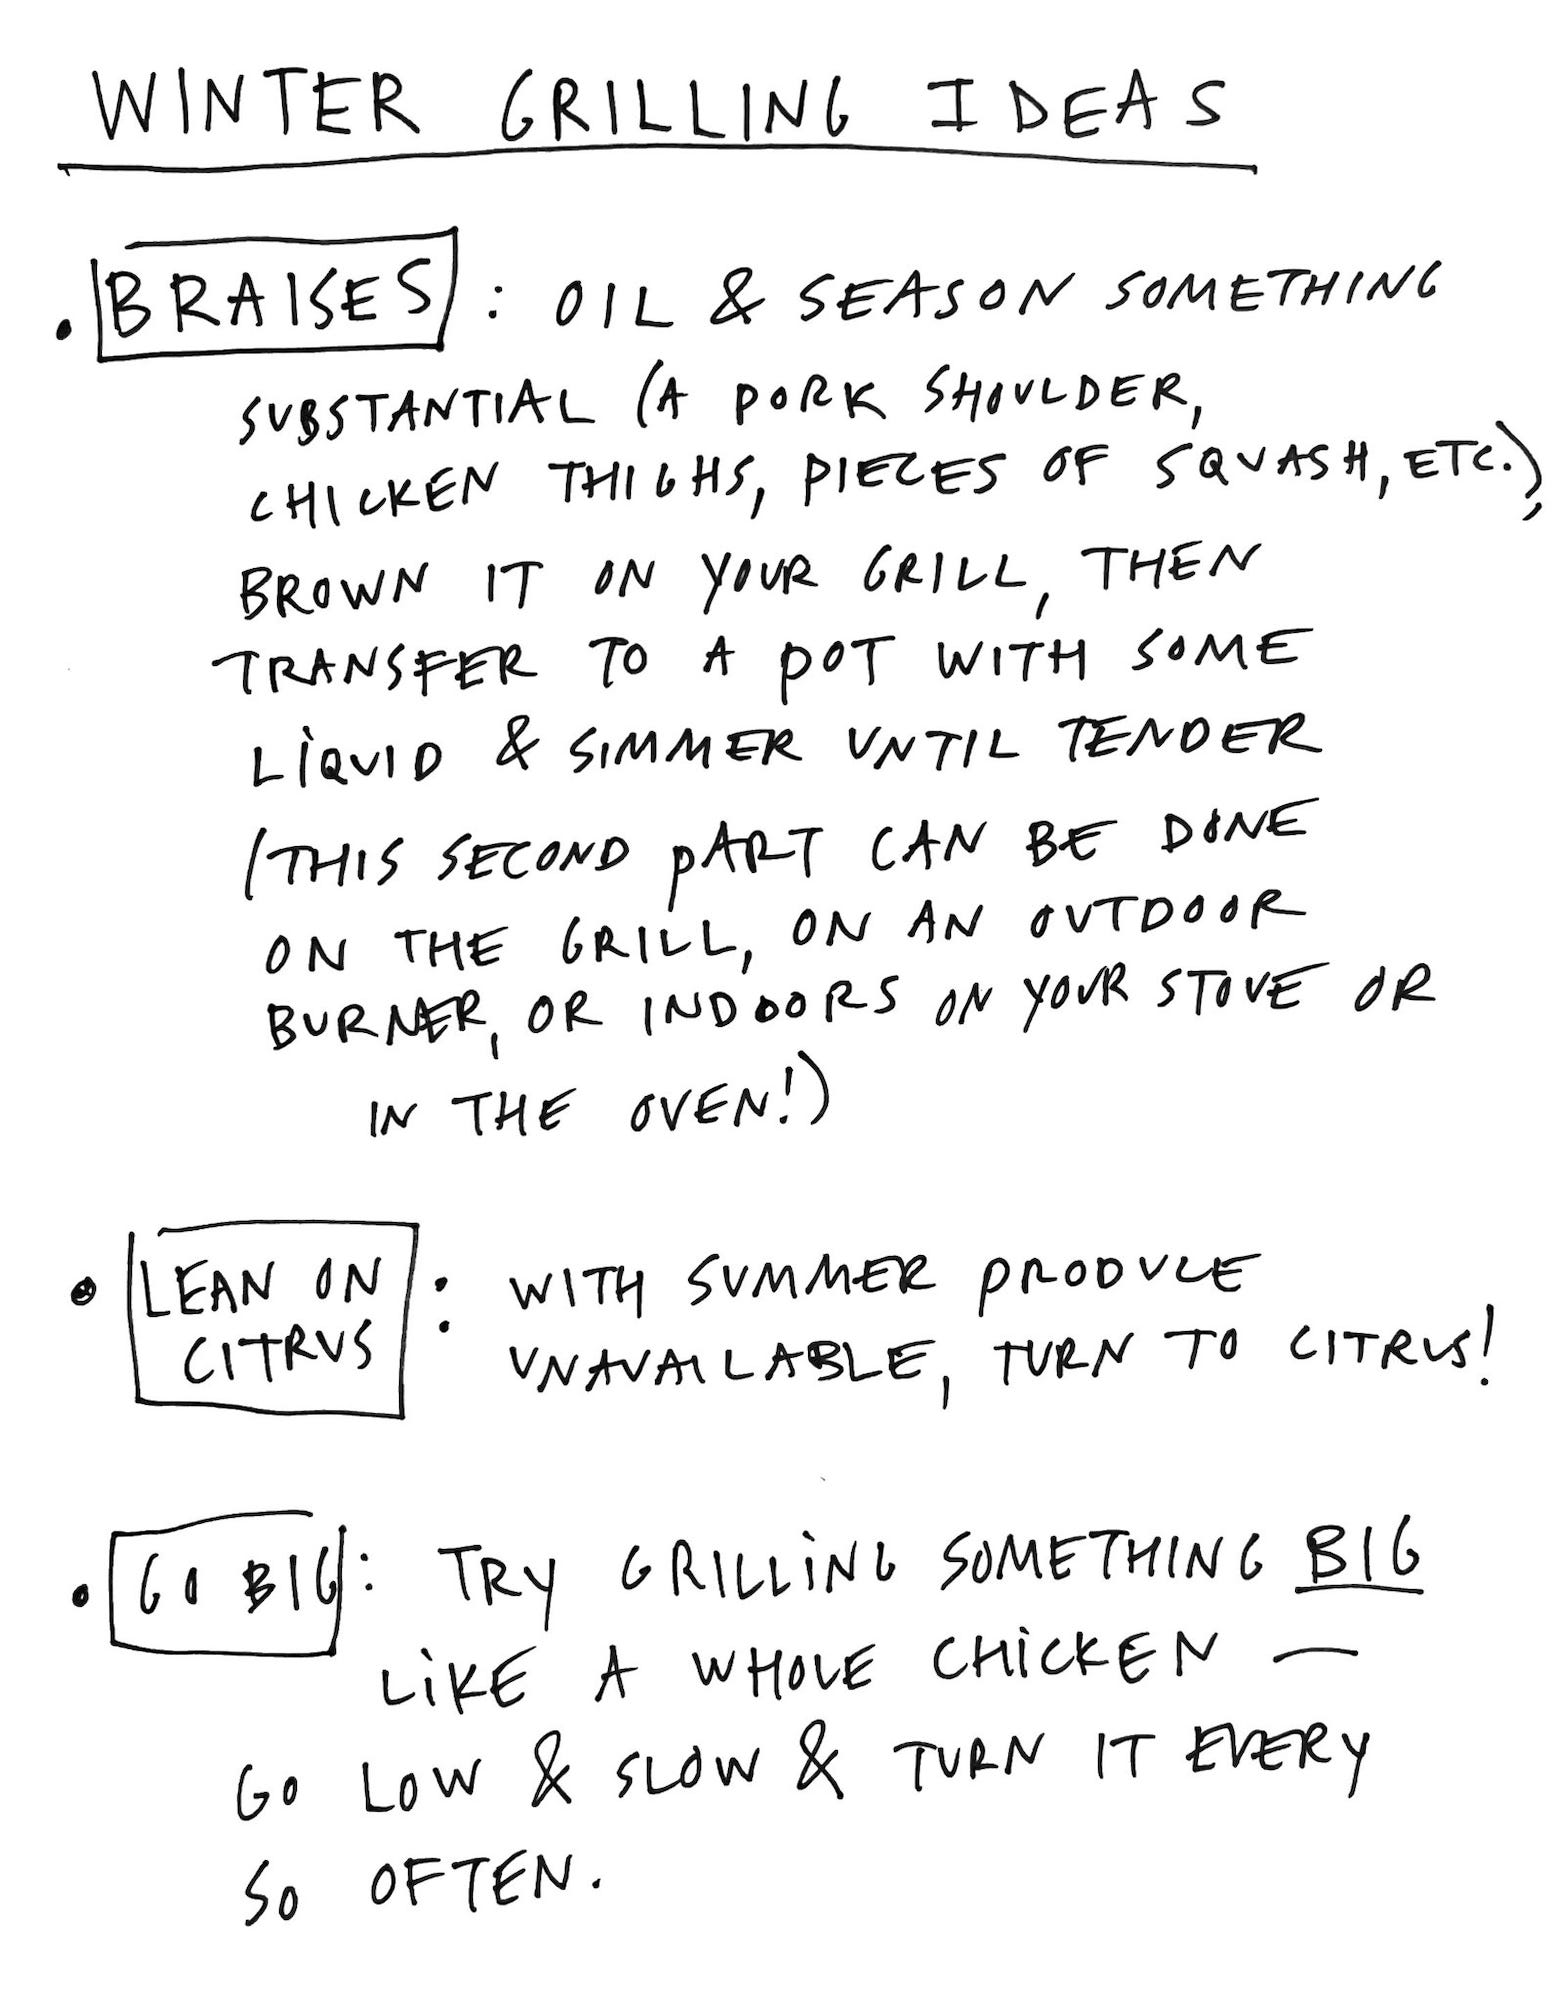 WINTER GRILLING IDEAS
• BRAISES : OIL & SEASON SOMETHING
SUBSTANTIAL (A PORK SHOULDER,
CHICKEN THIGHS, PIECES OF SQUASH, ETC.),
BROWN IT ON YOUR GRILL, THEN
TRANSFER TO A POT WITH SOME
LIQUID & SIMMER UNTIL TENDER
(THIS SECOND PART CAN BE DONE
ON THE GRILL, ON AN OUTDOOR
BURNER, OR INDOORS ON YOUR STOVE OR
IN THE OVEN!)
• LEAN ON CITRUS : WITH SUMMER PRODUCE
UNAVAILABLE, TURN TO CITRUS!
• GO BIG : TRY GRILLING SOMETHING BIG
LIKE A WHOLE CHICKEN —
GO LOW & SLOW & TURN IT EVERY
SO OFTEN.